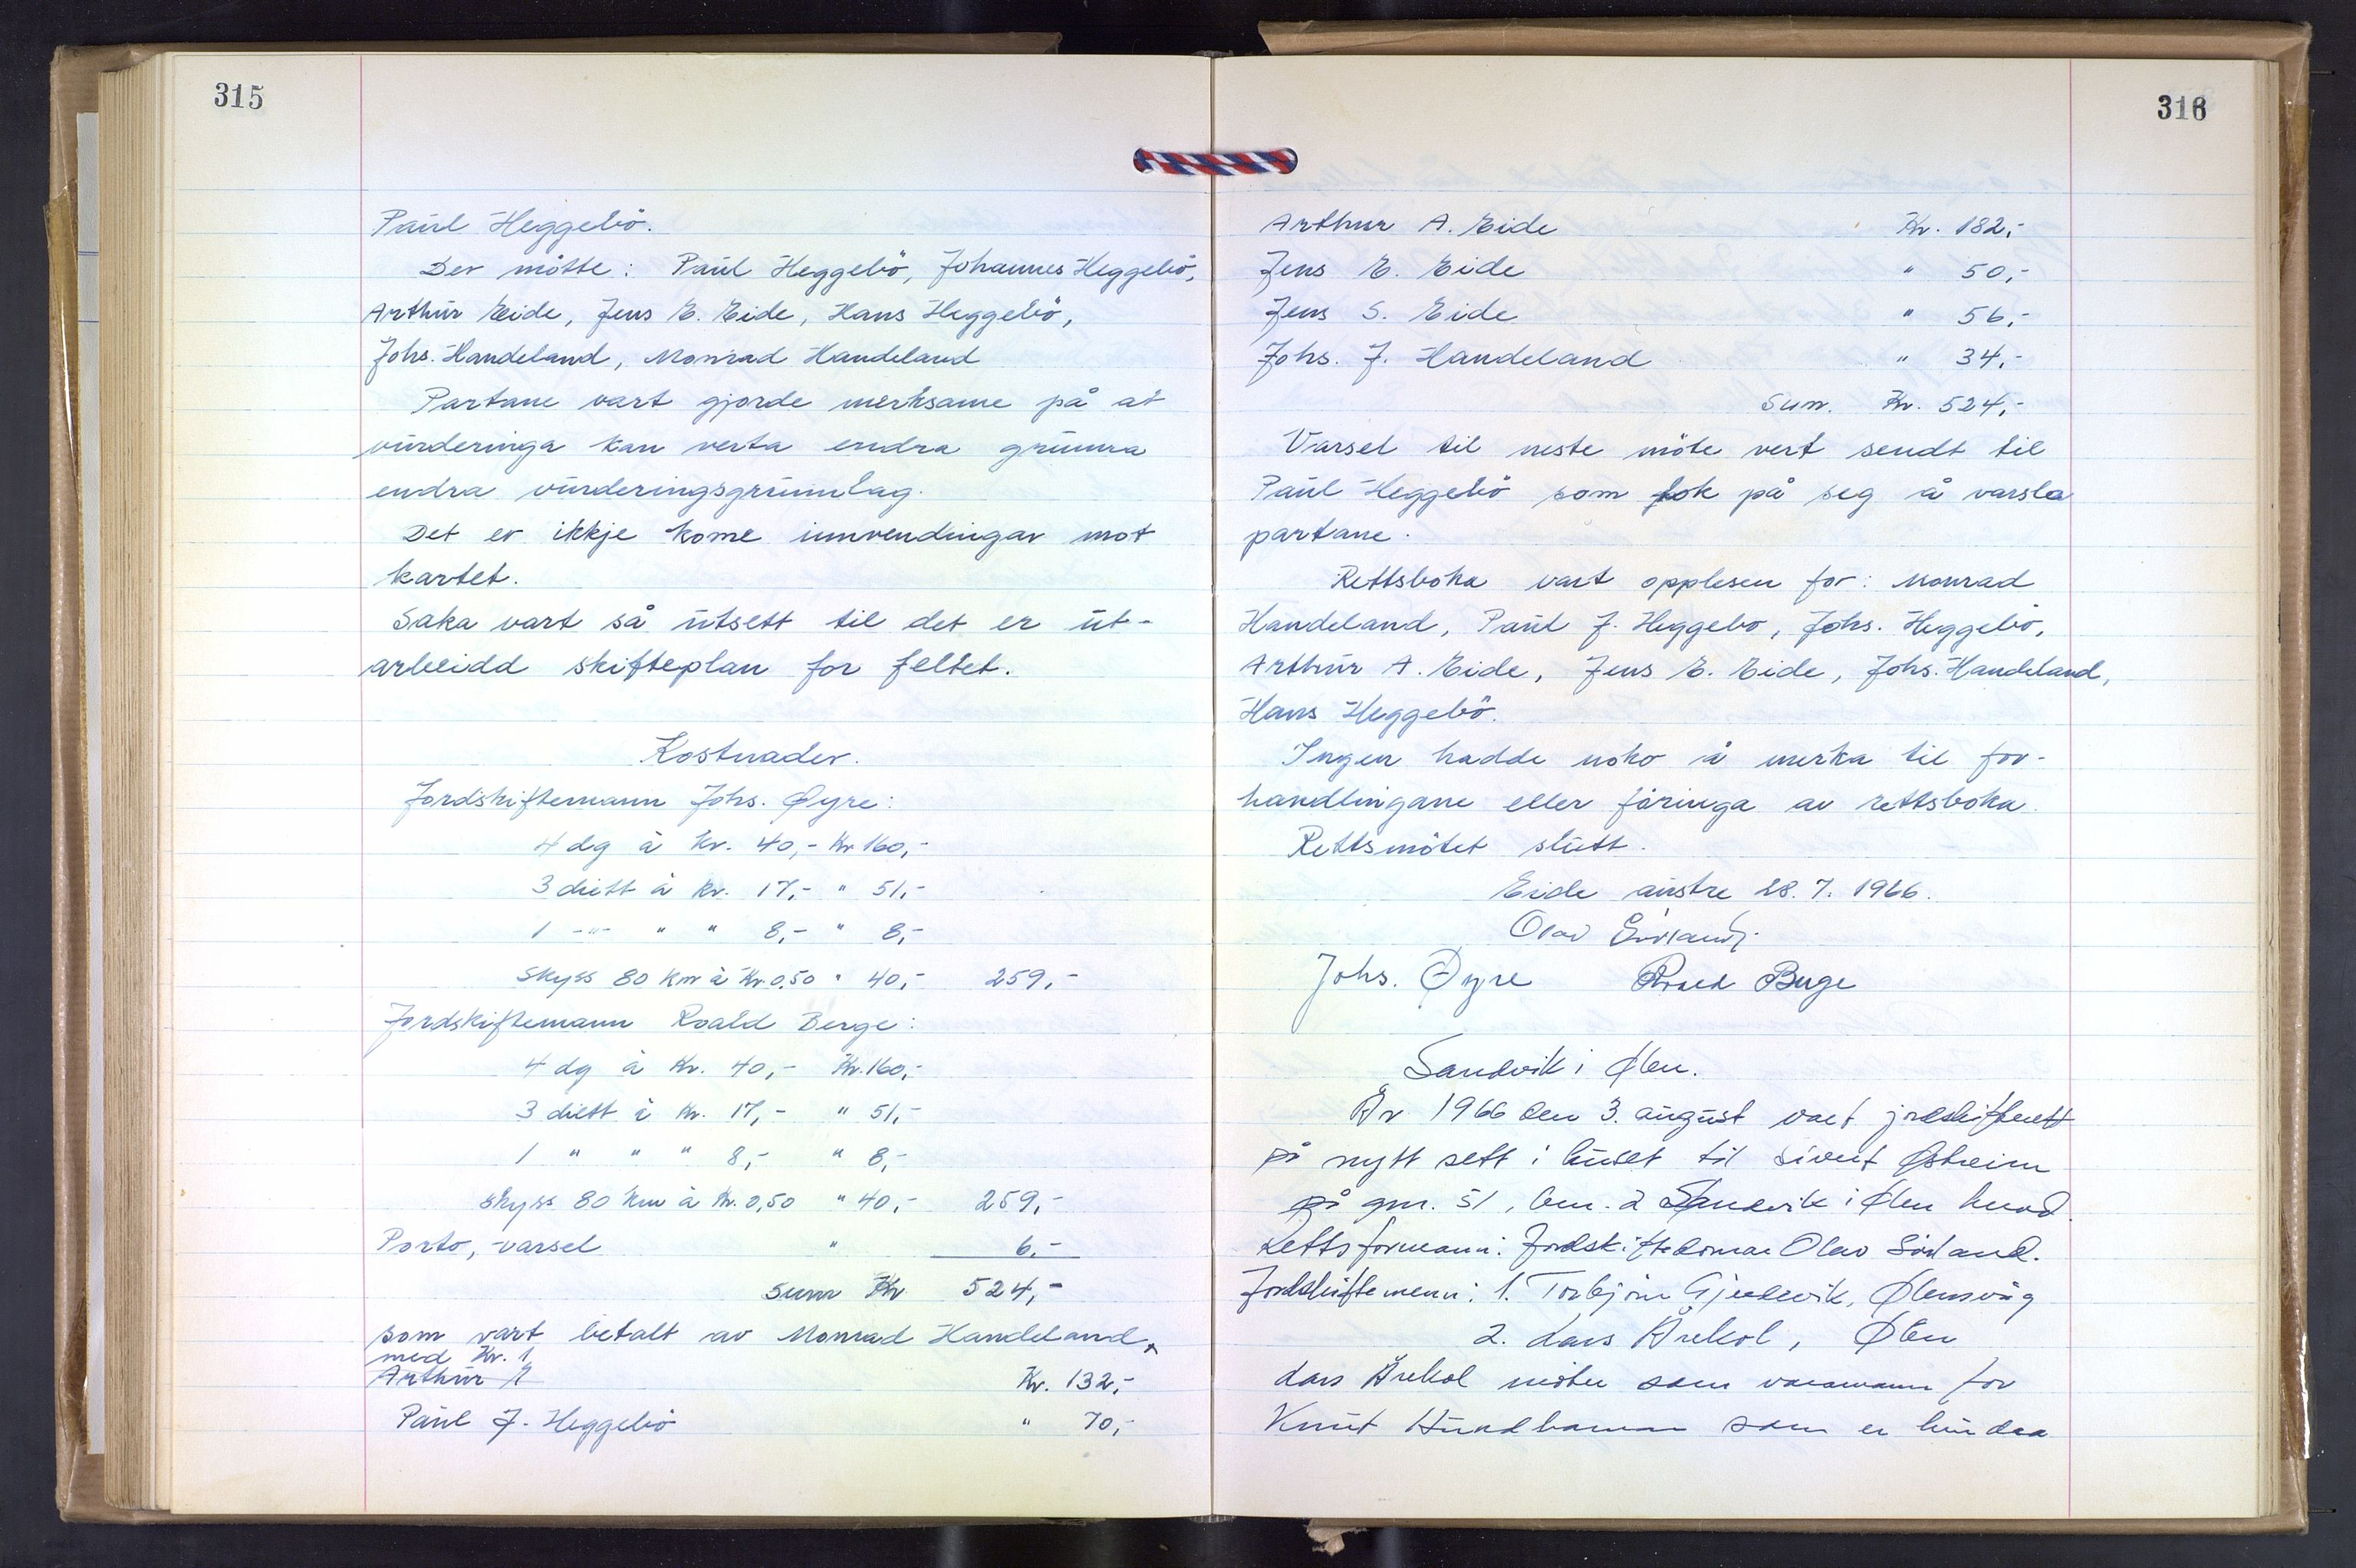 315
Paul Heggebö.
Der møtte: Paul Heggebö, Johannes Heggebö,
Arthur Eide, Jens E. Eide, Hans Heggebö,
Johs. Handeland, Monrad Handeland
Partane vart gjorde merksame på at
vurderinga kan verta endra grunna
endra vurderingsgrunnlag.
Det er ikkje kome innvendingar mot
kartet.
Saka vart så utsett til det er ut-
arbeidd skifteplan for feltet.
Kostnader.
Jordskiftemann Johs. Øyre:
4 dg à kr. 40,- Kr 160,-
3 diett à kr. 17,- " 51,-
1 -"- " " 8,- " 8,-
Skyss 80 km à kr. 0,50 " 40,- 259,-
Jordskiftemann Roald Berge:
4 dg à kr. 40,- Kr. 160,-
3 diett à kr. 17,- " 51,-
1 " " " 8,- " 8,-
Skyss 80 km à kr. 0,50 " 40,- 259,-
Porto, varsel " 6,-
Sum Kr 524,-
som vart betalt av Monrad Handeland,
med Kr. 1
Arthur A Kr. 132,-
Paul J. Heggebö " 70,-
316
Arthur A. Eide Kr. 182,-
Jens E. Eide " 50,-
Jens S. Eide " 56,-
Johs. J. Handeland " 34,-
Sum. Kr. 524,-
Varsel til neste möte vert sendt til
Paul Heggebö som tok på seg å varsla
partane.
Rettsboka vart opplesen for: Monrad
Handeland, Paul J. Heggebo, Johs. Heggebö,
Arthur A. Eide, Jens E. Eide, Johs. Handeland,
Hans Heggebö.
Ingen hadde noko å merka til for-
handlingane eller föringa av rettsboka.
Rettsmötet slutt.
Eide austre 28. 7. 1966.
Olav Sørland
Johs. Øyre Roald Berge
Sandvik i Ølen.
År 1966 den 3. august vart jordskifterett
på nytt sett i huset til Sivert Østreim
på gnr. 51, bnr. 2 Sandvik i Ølen herad.
Rettsformann: Jordskiftedomar Olav Sörland.
Jordskiftemenn: 1. Torbjörn Gjerdevik, Ølensvåg
2. Lars Årekol, Ølen
Lars Årekol möter som varamann for
Knut som er hindra